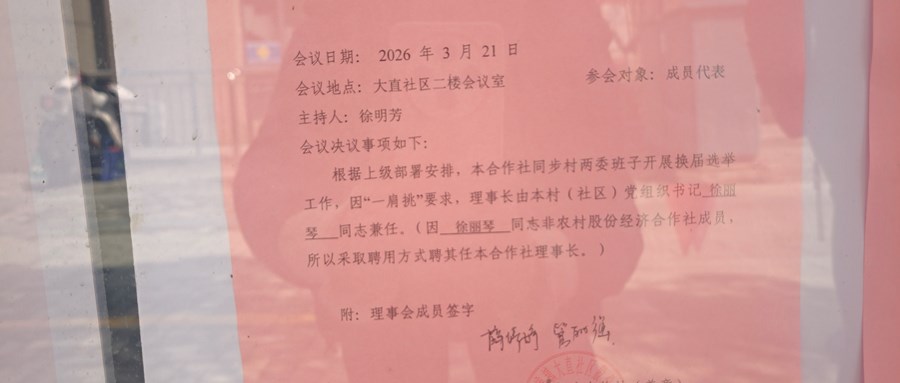 会议日期： 2026 年 3 月 21 日
会议地点：大直社区二楼会议室 参会对象：成员代表
主持人：徐明芳
会议决议事项如下：
根据上级部署安排，本合作社同步村两委班子开展换届选举
工作，因“一肩挑”要求，理事长由本村（社区）党组织书记 徐丽
琴 同志兼任。（因 徐丽琴 同志非农村股份经济合作社成员，
所以采取聘用方式聘其任本合作社理事长。）
附：理事会成员签字